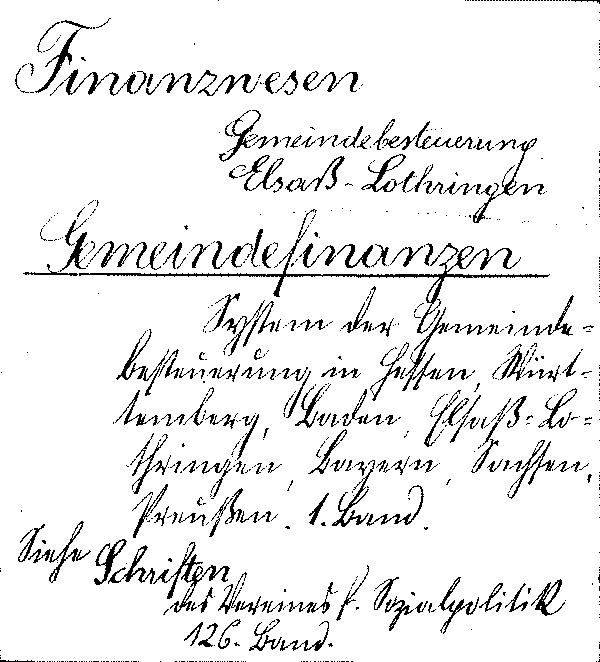 Finanzwesen
Gemeindebesteuerung
Elsaß-Lothringen
Gemeindefinanzen
System der Gemeinde=
besteuerung in Hessen, Würt-
temberg, Baden, Elsaß=Lo=
thringen, Bayern, Sachsen,
Preußen. 1. Band.
Siehe Schriften
des Vereines f. Sozialpolitik
126. Band.